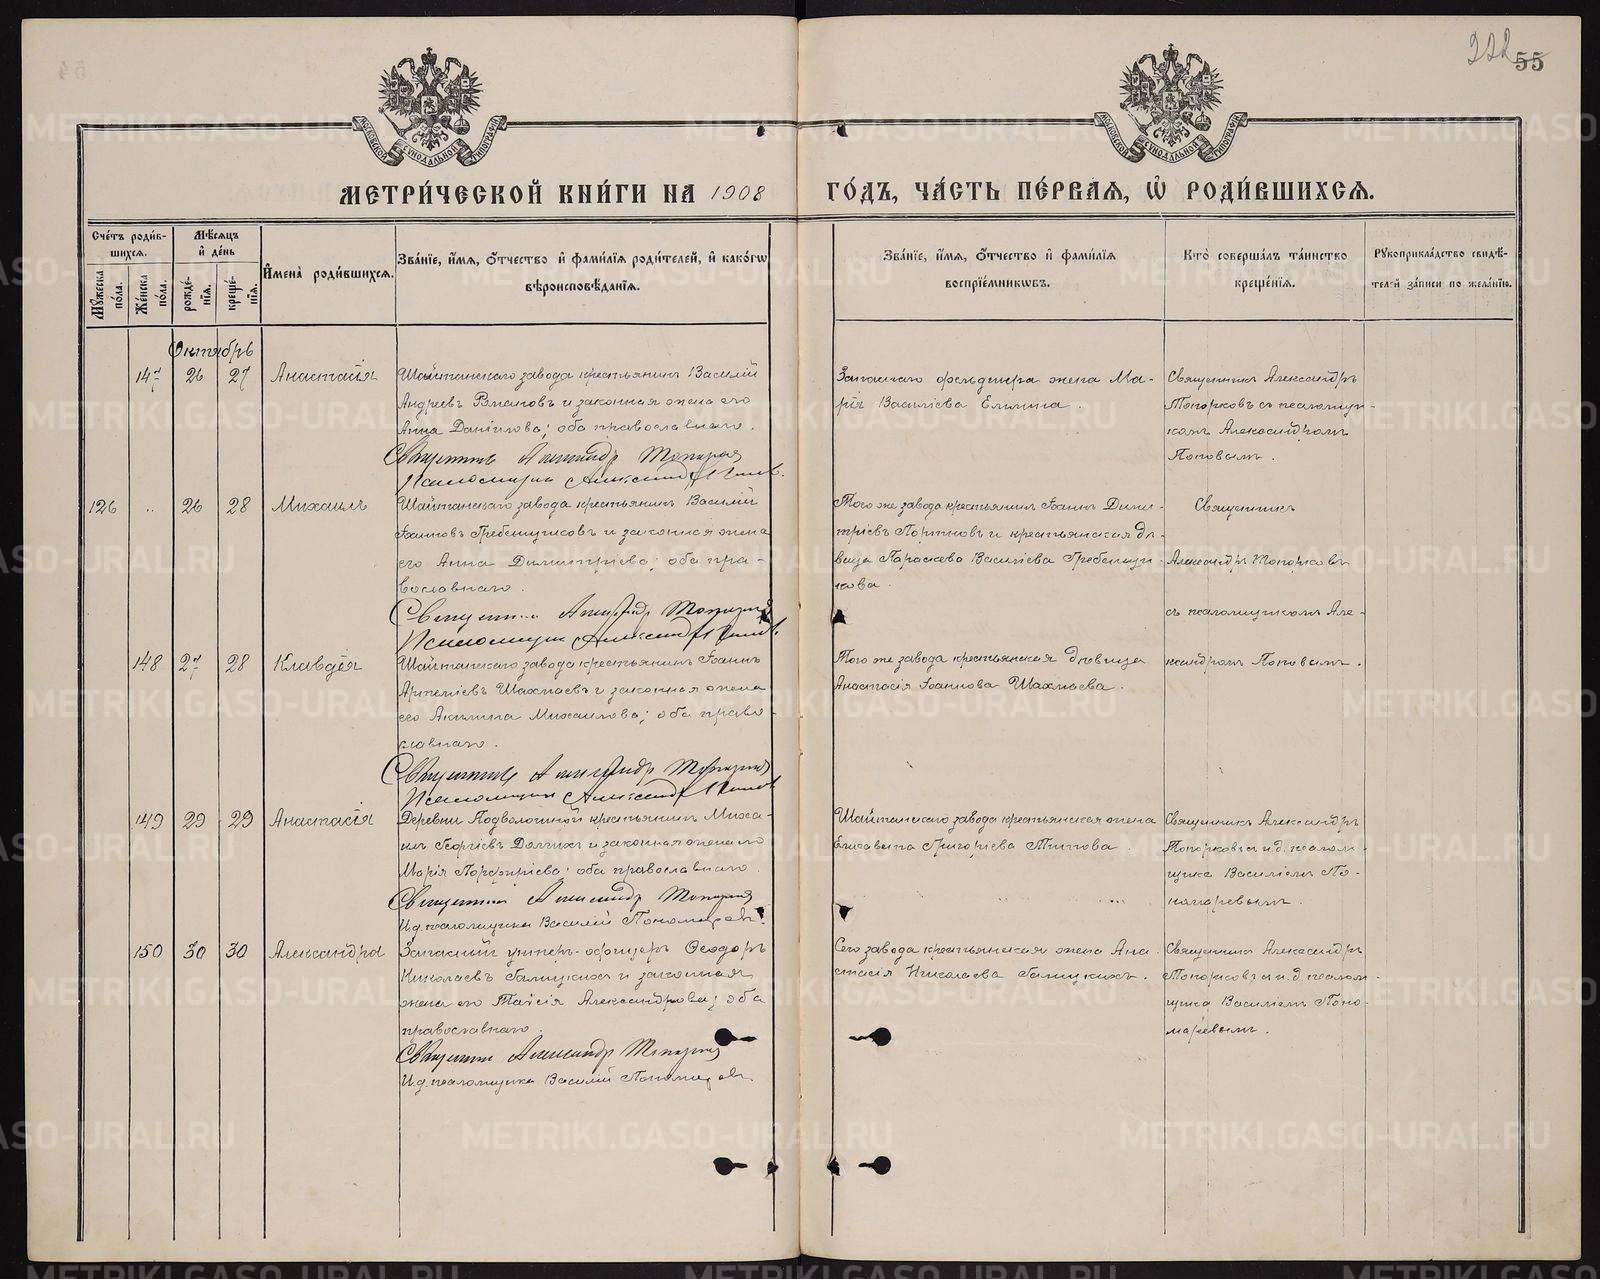 222 55
МОСКОВСКОЙ СѴНОДАЛЬНОЙ ТИПОГРАФІИ
МОСКОВСКОЙ СѴНОДАЛЬНОЙ ТИПОГРАФІИ
МЕТРИ́ЧЕСКОЙ КНИ́ГИ НА 1908 ГО́ДЪ, ЧА́СТЬ ПЕ́РВАѦ, Ѡ҆ РОДИ́ВШИХСѦ.
Сче́тъ роди́в-
шихсѧ.
Мꙋ́жеска по́ла.
Же́нска по́ла.
Мѣ́сѧцъ
и҆ де́нь
рожде́-
нїѧ.
креще́-
нїѧ.
И҆мена̀ роди́вшихсѧ.
Зва́нїе, и҆́мѧ, ѻ҆́тчество и҆ фами́лїѧ роди́телей, и҆ како́гѡ
вѣроисповѣ́данїѧ.
Зва́нїе, и҆́мѧ, ѻ҆́тчество и҆ фами́лїѧ
воспрїе́мникѡвъ.
Кто̀ соверша́лъ та́инство
креще́нїѧ.
Рꙋкоприкла́дство свидѣ́-
телей за́писи по жела́нїю.
Октябрь
147 26 27 Анастасія
Шайтанскаго завода крестьянинъ Василій
Андреевъ Романовъ и законная жена его
Анна Данилова; оба православнаго.
Священникъ Александръ Топорков
Псаломщикъ Александръ Попов.
Запаснаго фельдшера жена Ма-
рія Васильева Елькина.
Священникъ Александръ
Топорковъ съ псаломщи-
комъ Александромъ
Поповымъ.
126 " 26 28 Михаилъ
Шайтанскаго завода крестьянинъ Василій
Іоанновъ Гребенщиковъ и законная жена
его Анна Димитріева; оба пра-
вославнаго.
Священник Александр Топорков
Псаломщик Александръ Попов.
Того же завода крестьянинъ Іоаннъ Дими-
тріевъ Портновъ и крестьянская дѣ-
вица Параскева Васильева Гребенщи-
кова.
Священникъ
Александръ Топорковъ
съ псаломщикомъ Але-
ксандромъ Поповымъ.
148 27 28 Клавдія
Шайтанскаго завода крестьянинъ Іоаннъ
Артеміевъ Шахмаевъ и законная жена
его Акилина Михаилова; оба право-
славнаго.
Священникъ Александр Топорков
Псаломщик Александръ Попов
Того же завода крестьянская дѣвица
Анастасія Іоаннова Шахмаева.
149 29 29 Анастасія
Деревни Подволошной крестьянинъ Миха-
илъ Георгіевъ Долгихъ и законная жена его
Марія Порфиріева; оба православнаго.
Священникъ Александр Топорков
И.д. псаломщика Василій Пономаревъ.
Шайтанскаго завода крестьянская жена
Елисавета Григоріева Титова.
Священникъ Александръ
Топорковъ и и.д. псалом-
щика Василіемъ По-
номаревымъ.
150 30 30 Александра
Запасный унтеръ-офицеръ Ѳеодоръ
Николаевъ Галицкихъ и законная
жена его Таисія Александрова; оба
православнаго.
Священникъ Александр Топорков
И.д. псаломщика Василій Пономаревъ.
Сего завода крестьянская жена Ана-
стасія Николаева Галицкихъ.
Священникъ Александръ
Топорковъ и и.д. псалом-
щика Василіемъ Поно-
маревымъ.
METRIKI.GASO-URAL.RU